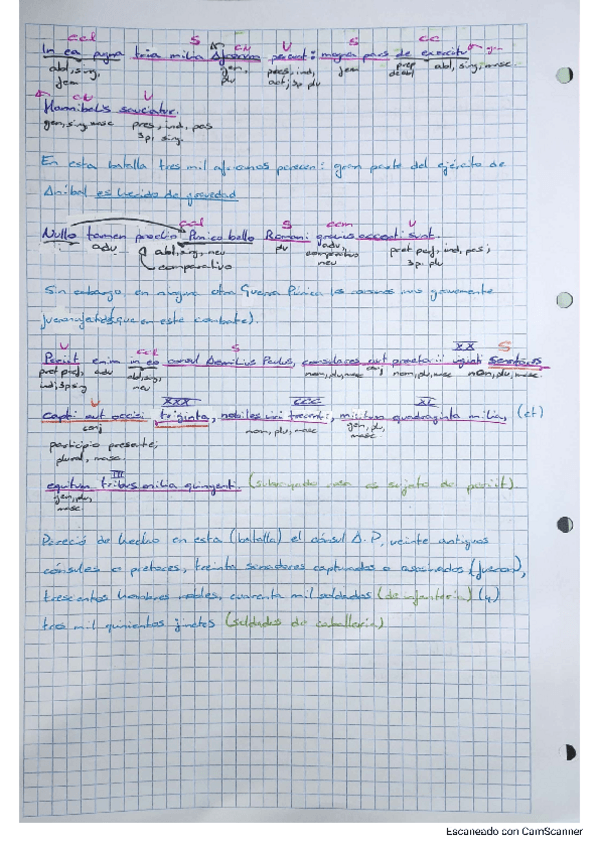 ccl S CN V S cc
In ea pugna tria milia Afrorum pereunt: magna pars de exercitu
abl, sing, fem gen, plu pres, ind, act, 3p plu fem prep de abl abl, sing, masc.
CN V
Hannibalis sauciatur.
gen, sing, masc pres, ind, pas 3p, sing.
En esta batalla tres mil africanos perecen: gran parte del ejército de
Aníbal es herido de gravedad
ccl S ccm V
Nullo tamen proelio Punico bello Romani gravius accepti sunt.
adv abl, sing, neu plu adv, comparativo neu pret perf, ind, pas; 3p. plu
comparativo
Sin embargo, en ninguna otra Guerra Púnica los romanos más gravemente
V ccl S XX S
Periit enim in eo consul Aemilius Paulus, consulares aut praetorii viginti senatores
pret perf, adv abl, sing, neu nom, plu, masc conj nom, plu, masc nom, plu, masc.
ind; 3p sing
V XXX CCC XL
capti aut occisi triginta, nobiles viri trecenti, militum quadraginta milia, (et)
conj nom, plu, masc gen, plu, masc.
participio presente;
plural, masc.
III
equitum tribus milia quingenti. (subrayado rosa es sujeto de periit).
gen, plu, masc
Pereció de hecho en esta (batalla) el cónsul A.P, veinte antiguos
cónsules o pretores, treinta senadores capturados o asesinados (fueron),
trescientos hombres nobles, cuarenta mil soldados (de infantería) (y)
tres mil quinientos jinetes (soldados de caballería)
Escaneado con CamScanner